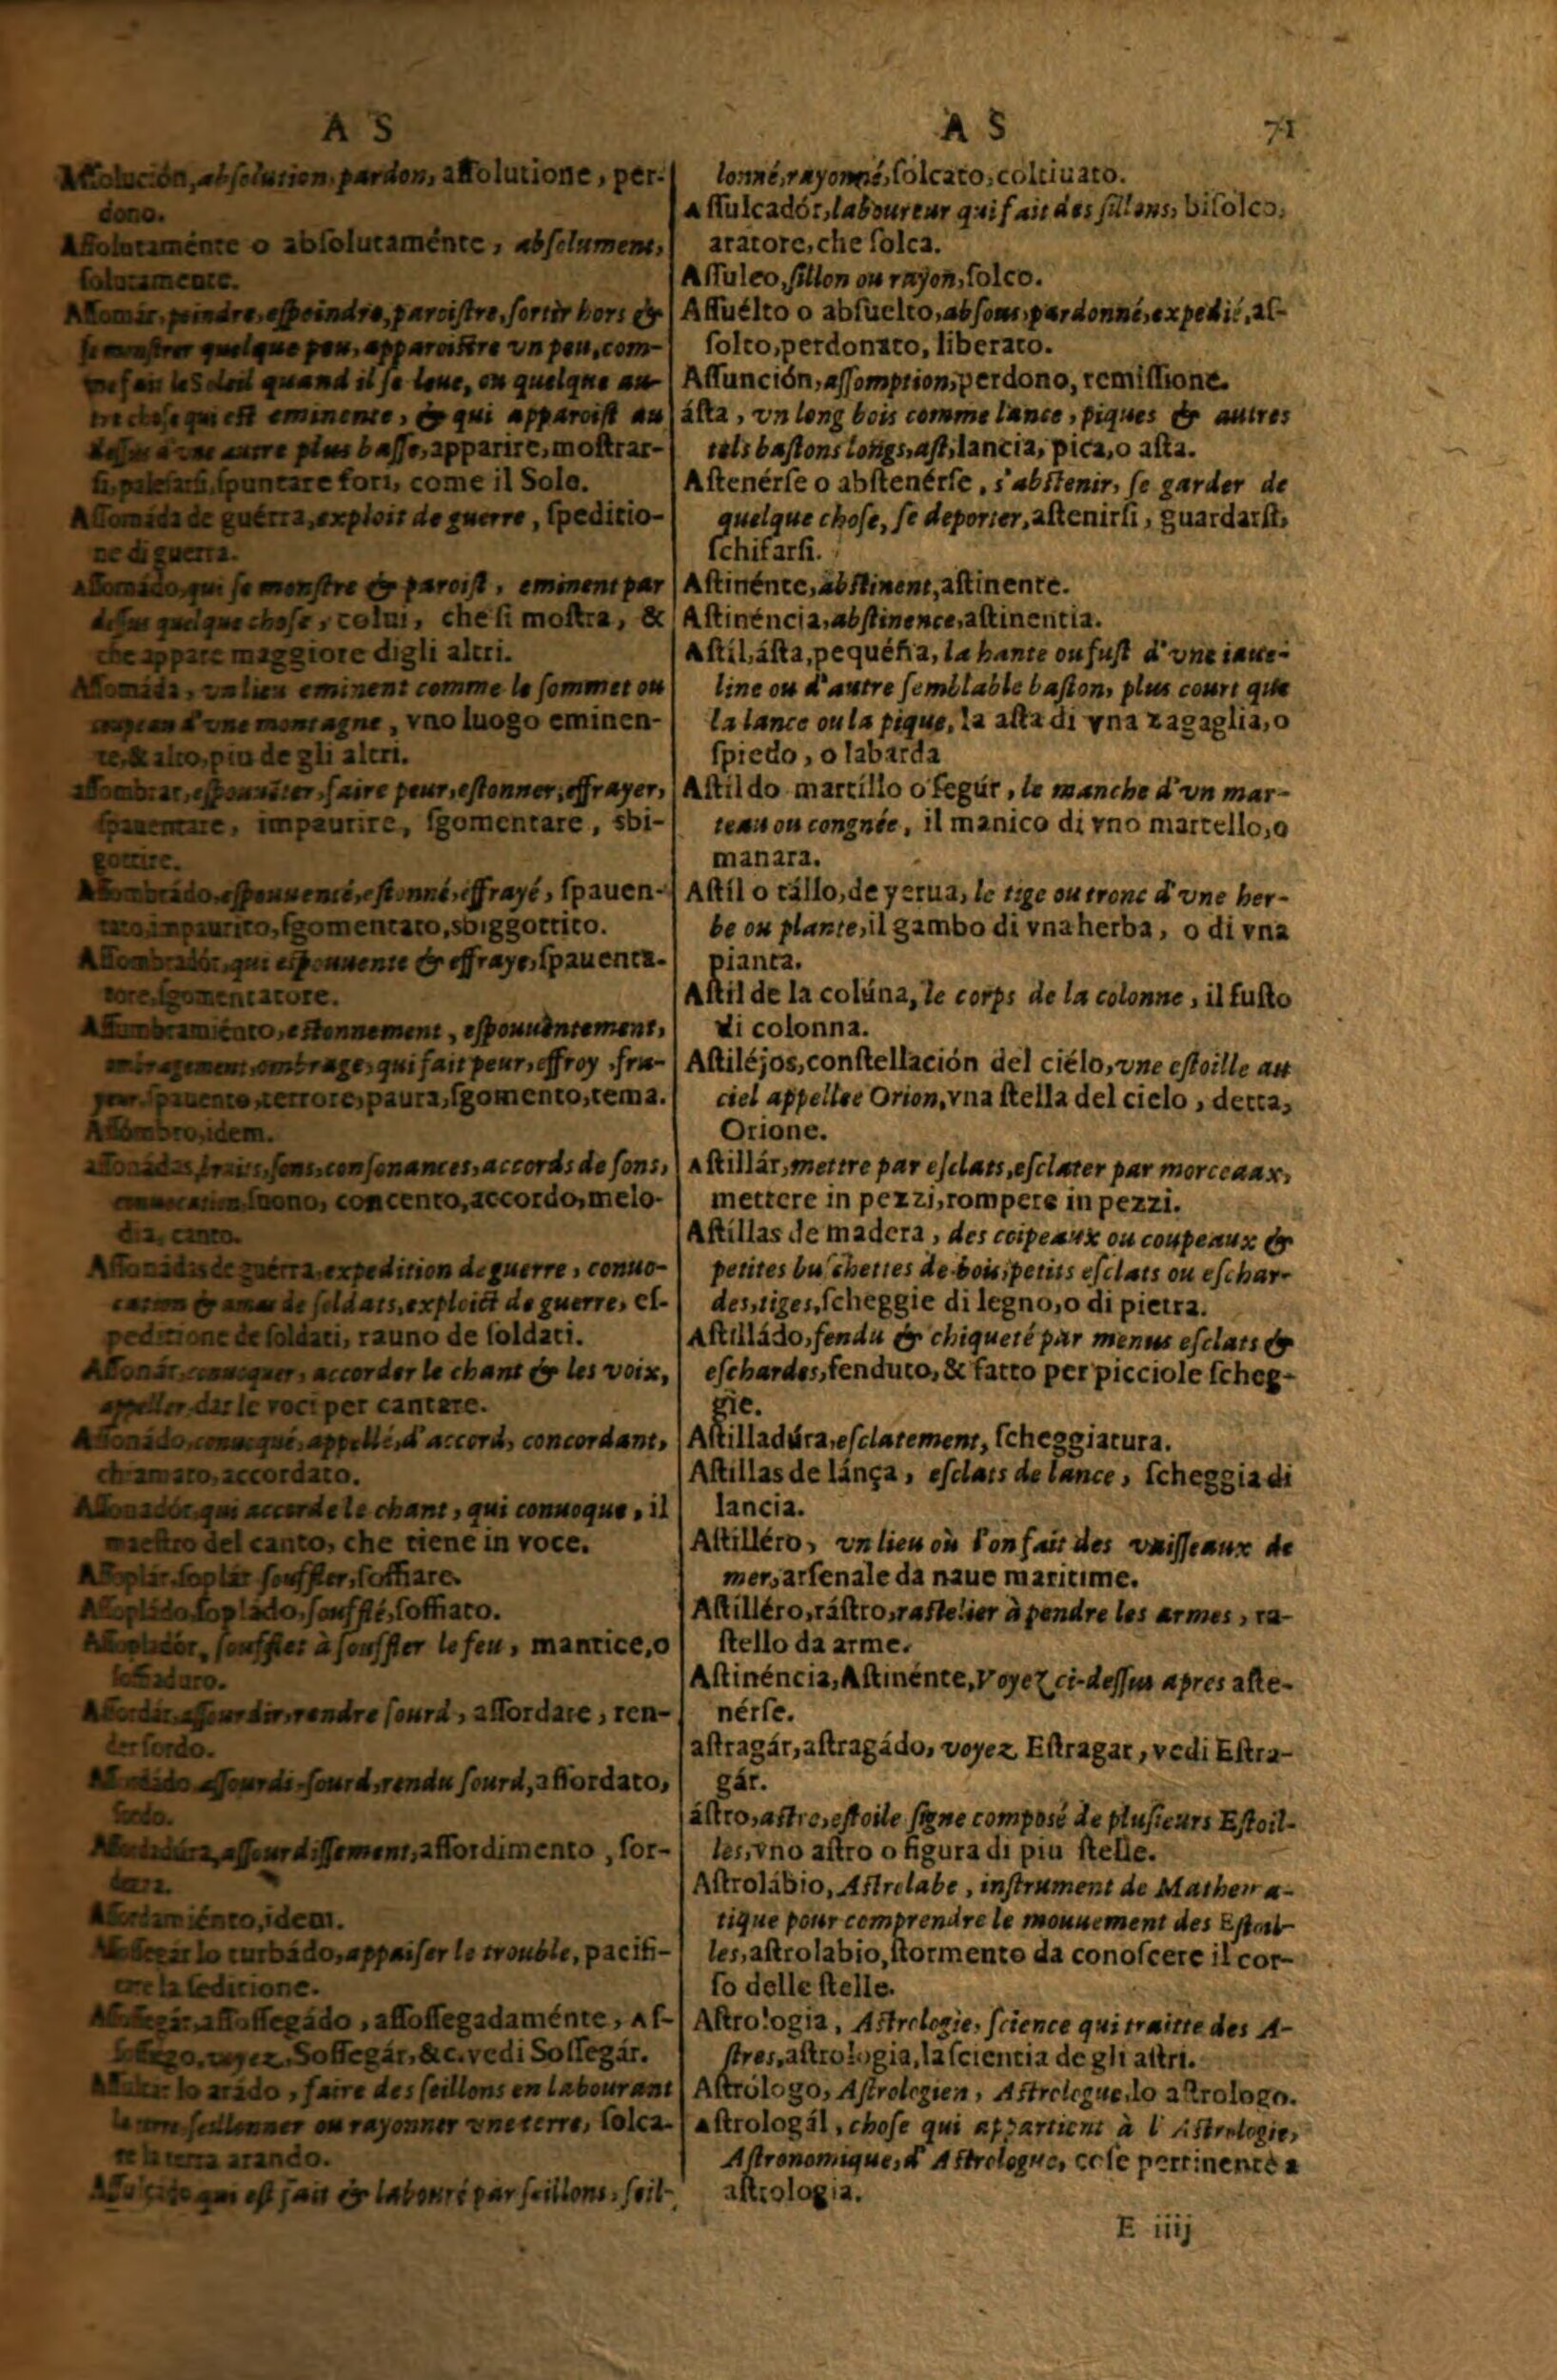 A S
Aſſolución, abſolution, pardon, aſſolutione, per-
dono.
Aſſolutaménte o abſolutaménte, abſolument,
ſolutamente.
Aſſomár, poindre, eſpoindre, paroiſtre, ſortir hors &
ſe monſtrer quelque peu, apparoiſtre vn peu, com-
me fait le Soleil quand il ſe leue, ou quelque au-
tre choſe qui eſt eminente, & qui apparoiſt au
deſſus d'vne autre plus baſſe, apparire, moſtrar-
ſi, paleſarſi, ſpuntare fori, come il Sole.
Aſſomáda de guérra, exploit de guerre, ſpeditio-
ne di guerra.
Aſſomádo, qui ſe monſtre & paroiſt, eminent par
deſſus quelque choſe, colui, che ſi moſtra, &
che appare maggiore digli altri.
Aſſomáda, vn lieu eminent comme le ſommet ou
d'vne montagne, vno luogo eminen-
te, & alto, piu de gli altri.
aſſombrar, eſpouuēter, faire peur, eſtonner, effrayer,
ſpauentare, impaurire, ſgomentare, sbi-
gottire.
Aſſombrádo, eſpouuenté, eſtonné, effrayé, ſpauen-
tato, impaurito, ſgomentato, sbiggottito.
Aſſombradór, qui eſpouuente & effraye, ſpauenta-
tore, ſgomentatore.
Aſſombramiénto, eſtonnement, eſpouuentement,
ombragement, ombrage, qui fait peur, effroy, fra-
yeur, ſpauento, terrore, paura, ſgomento, tema.
Aſſómbro, idem.
aſſonádas, ſons, conſonances, accords de ſons,
ſuono, concento, accordo, melo-
dia, canto.
Aſſonádas de guérra, expedition de guerre, conuo-
cation & amas de ſoldats, exploict de guerre, eſ-
peditione de ſoldati, rauno de ſoldati.
Aſſonár, conuoquer, accorder le chant & les voix,
appeller, dar le voci per cantare.
Aſſonádo, conuoqué, appellé, d'accord, concordant,
chiamato, accordato.
Aſſonadór, qui accorde le chant, qui conuoque, il
maeſtro del canto, che tiene in voce.
Aſſoplár, ſoplár ſouffler, ſoffiare.
Aſſopládo, ſopládo, ſoufflé, ſoffiato.
Aſſopladór, ſoufflet à ſouffler le feu, mantice, o
ſoffiaduro.
Aſſordár, aſſourdir, rendre ſourd, aſſordare, ren-
der ſordo.
aſſourdi, ſourd, rendu ſourd, aſſordato,
ſordo.
aſſourdiſſement, aſſordimento, ſor-

Aſſordamiénto, idem.
Aſſoſſegár lo turbádo, appaiſer le trouble, pacifi-
care la ſeditione.
Aſſoſſegár, aſſoſſegádo, aſſoſſegadaménte, Aſ-
ſoſſiego, voyez, Soſſegár, &c. vedi Soſſegár.
Aſſulcar lo arádo, faire des ſeillons en labourant
la terre, ſeillonner ou rayonner vne terre, ſolca-
re la terra arando.
Aſſulcádo qui eſt fait & labouré par ſeillons, ſeil-
A S 71
lonné, rayonné, ſolcato, coltiuato.
Aſſulcadór, laboureur qui fait des ſillons, bifolco,
aratore, che ſolca.
Aſſulco, ſillon ou rayon, ſolco.
Aſſuélto o abſuelto, abſous, pardonné, expedié, aſ-
ſolto, perdonato, liberato.
Aſſunción, aſſomption, perdono, remiſſione.
áſta, vn long bois comme lance, piques & autres
tels baſtons longs, aſt, lancia, pica, o aſta.
Aſtenérſe o abſtenérſe, s'abſtenir, ſe garder de
quelque choſe, ſe deporter, aſtenirſi, guardarſi,
ſchifarſi.
Aſtinénte, abſtinent, aſtinente.
Aſtinéncia, abſtinence, aſtinentia.
Aſtíl, áſta, pequéña, la hante ou fuſt d'vne iaue-
line ou d'autre ſemblable baſton, plus court que
la lance ou la pique, la aſta di vna zagaglia, o
ſpiedo, o labarda
Aſtil do martíllo o ſegúr, le manche d'vn mar-
teau ou congnée, il manico di vno martello, o
manara.
Aſtíl o tállo, de yerua, le tige ou tronc d'vne her-
be ou plante, il gambo di vna herba, o di vna
pianta.
Aſtil de la colúna, le corps de la colonne, il fuſto
di colonna.
Aſtiléjos, conſtellación del ciélo, vne eſtoille au
ciel appellee Orion, vna ſtella del cielo, detta,
Orione.
Aſtillár, mettre par eſclats, eſclater par morceaux,
mettere in pezzi, rompere in pezzi.
Aſtíllas de madera, des coipeaux ou coupeaux &
petites buchettes de bois, petits eſclats ou eſchar-
des, tiges, ſcheggie di legno, o di pietra.
Aſtilládo, fendu & chiqueté par menus eſclats &
eſchardes, fenduto, & fatto per picciole ſcheg-
gie.
Aſtilladúra, eſclatement, ſcheggiatura.
Aſtillas de lánça, eſclats de lance, ſcheggia di
lancia.
Aſtilléro, vn lieu où l'on fait des vaiſſeaux de
mer, arſenale da naue maritime.
Aſtilléro, ráſtro, raſtelier à pendre les armes, ra-
ſtello da arme.
Aſtinéncia, Aſtinénte, Voyez ci-deſſus apres aſte-
nérſe.
aſtragár, aſtragádo, voyez Eſtragar, vedi Eſtra-
gár.
áſtro, aſtre, eſtoile ſigne composé de pluſieurs Eſtoil-
les, vno aſtro o figura di piu ſtelle.
Aſtrolábio, Aſtrolabe, inſtrument de Mathema-
tique pour comprendre le mouuement des Eſtoil-
les, aſtrolabio, ſtormento da conoſcere il cor-
ſo delle ſtelle.
Aſtrologia, Aſtrologie, ſcience qui traitte des A-
ſtres, aſtrologia, la ſcientia de gli aſtri.
Aſtrólogo, Aſtrologien, Aſtrologue, lo aſtrologo.
aſtrologál, choſe qui appartient à l'Aſtrologie,
Aſtronomique, d'Aſtrologue, coſe pertinente a
aſtrologia.
E iiij